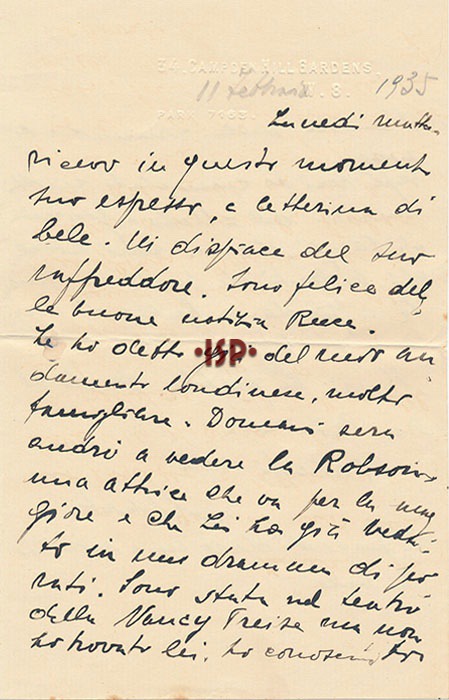 34, CAMPDEN HILL GARDENS.
W. 8.
PARK 7953.
11 Febbraio 1935
Lunedì matt.
ricevo in questo momento
suo espresso, e letterina di
bele. Mi dispiace del suo
raffreddore. Sono felice del
le buone notizia Reece.
Le ho detto già del mio an
damento londinese, molto
famigliare. Domani sera
andrò a vedere la Robson
una attrice che va per la mag
giore e che Lei ha già vedu
to in un dramma di
rati. Sono stata nel teatro
della Nancy Preise ma non
ho trovato lei. ho
•ISP•